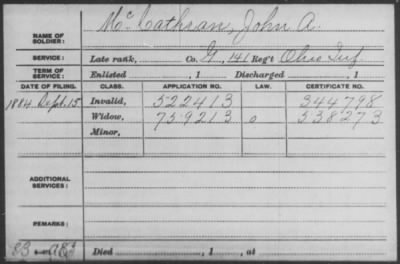 NAME OF SOLDIER: McCathran, John A.
SERVICE: Late rank, Co. G, 141 Reg't Ohio Inf
TERM OF SERVICE: Enlisted , 1 Discharged , 1
DATE OF FILING. CLASS. APPLICATION NO. LAW. CERTIFICATE NO.
1884 Sept. 15 Invalid, 522413 344798
Widow, 759213 o 538273
Minor,
ADDITIONAL SERVICES:
REMARKS:
Died , 1 , at